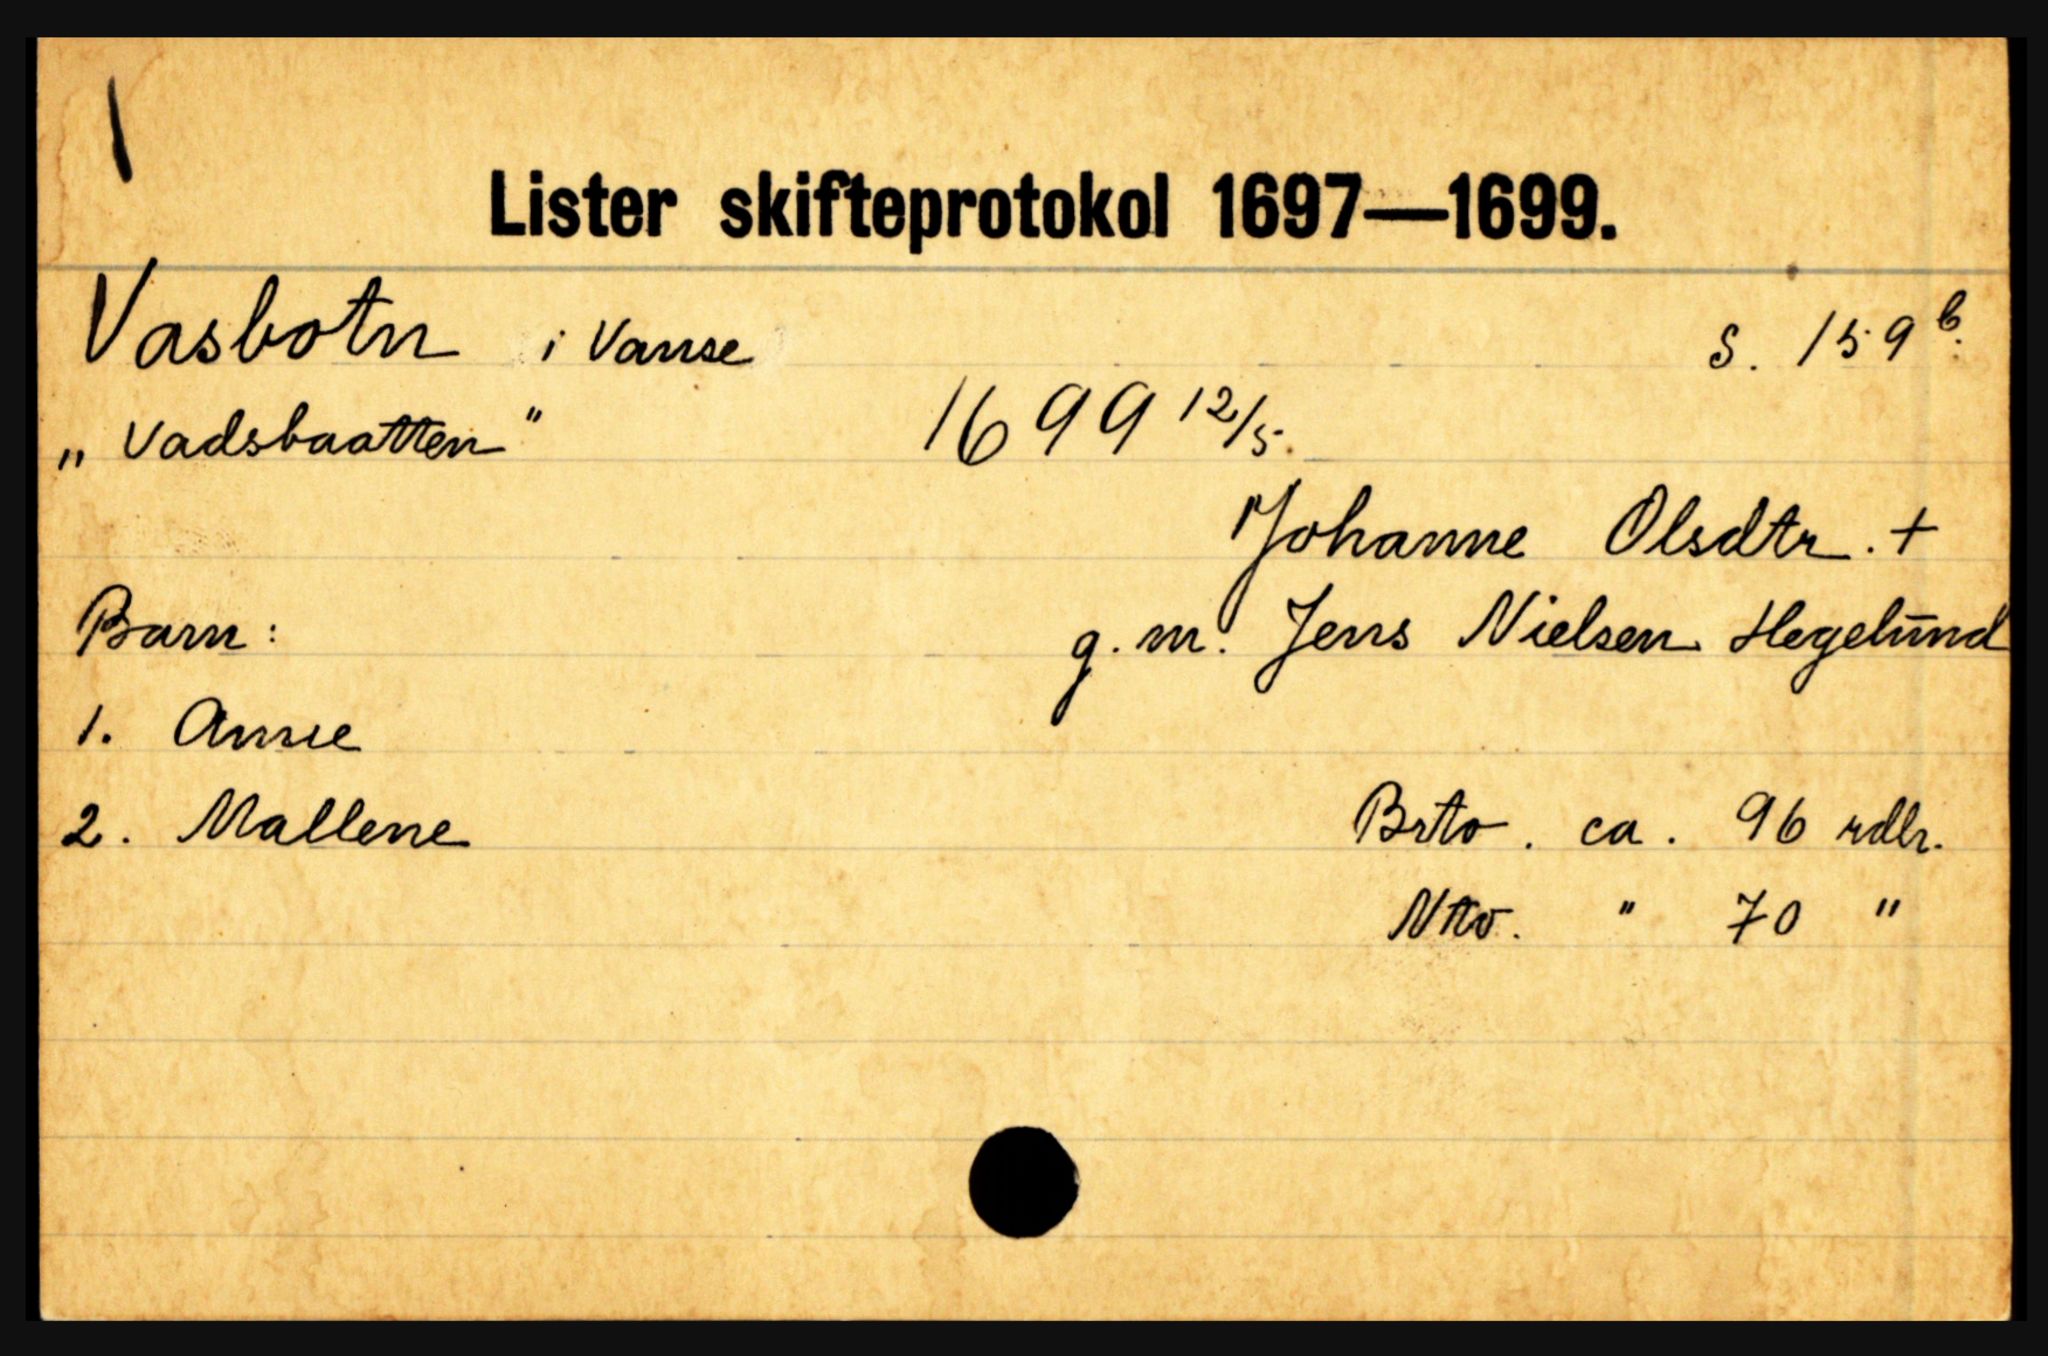 Lister skifteprotokol 1697—1699.
Vasbotn i Vanse s. 159 b.
„Vadsbaatten" 1699 12/5.
Johanne Olsdtr. +
Barn: g. m. Jens Nielsen Hegelund
1. Anne
2. Mallene Brto. ca. 96 rdlr.
Ntto. " 70 "